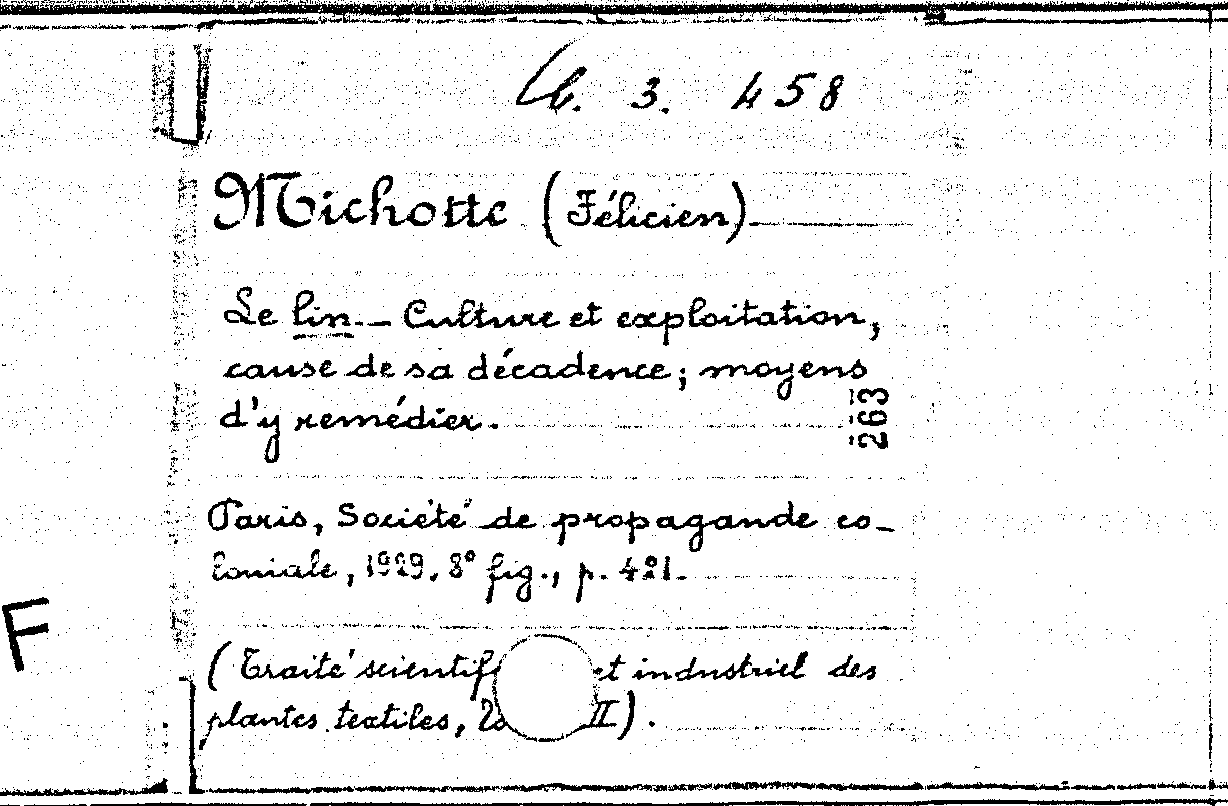 3. 458
Michotte (Félicien)
Le lin. — Culture et exploitation,
cause de sa décadence; moyens
d'y remédier.
263
Paris, Société de propagande co-
loniale, 1929. 8° fig., p. 421.
F
(Traité scientif et industriel des
plantes textiles, II).